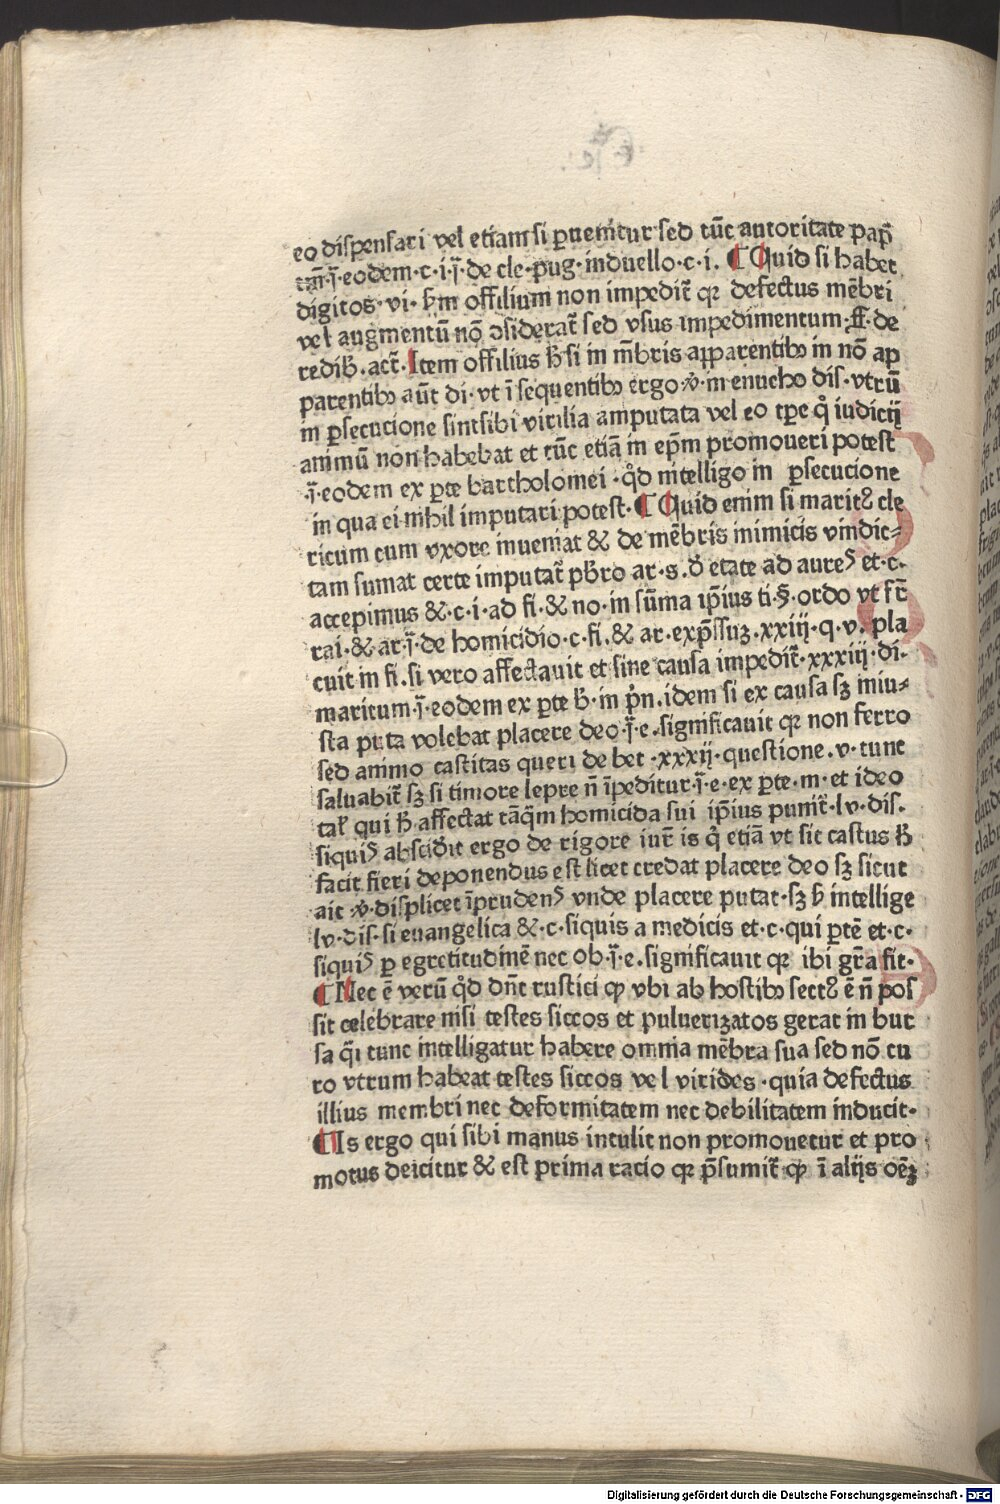 eo dispensari vel etiam si ꝑuenitur sed tūc autoritate pap̄
tm̄·j̄·eodem·c·i·j̄·de cle·pug·induello·c·i. ¶ Quid si habet
digitos·vi· ẜm offilium non impedit̄ qꝛ defectus mēbri
vel augmentū nō ↄsiderat̄ sed vsus impedimentum·ff·de
redib̄·act̄·Item offilius ħ si in mēbris apparentibꝫ in nō ap
parentibꝫ aūt di·vt ī sequentibꝫ ergo·v̄·in enucho dis·vtrū
in ꝑsecucione sint sibi virilia amputata vel eo tꝑe q̊ iudicij
animū non habebat et tūc etiā in ep̄m promoueri potest
·j̄·eodem ex ꝑte bartholomei·q̊d intelligo in ꝑsecucione
in qua ei nihil imputari potest·¶ Quid enim si maritꝰ cle
ricum cum vxore inueniat & de mēbris inimicis vindic⸗
tam sumat certe imputat̄ pb̄ro ar·s·d̓ etate ad aureꝭ et·c·
accepimus &·c·i·ad fi·& no·in sūma ip̄ius ti·§·ordo vt fr̄c
rai·& ar·j̄·de homicidio·c·fi·& ar·exp̄ssuꝫ·xxiij·q·v·pla
cuit in fi·si vero affectauit et sine causa impedit̄·xxxiij·di·
maritum·j̄·eodem ex ꝑte b̄·in p̄n·idem si ex causa sꝫ iniu⸗
sta puta volebat placere deo·j̄·e·significauit qꝛ non ferro
sed animo castitas queri debet·xxxij·questione·v·tunc
saluabit̄ sꝫ si timore lepre n̄ īpeditur·j̄·e·ex ꝑte·m·et ideo
tal̄ qui ħ affectat tāq̄m homicida sui ip̄ius punit̄·lv·dis·
siquiꝭ absciderit ergo de rigore iur̄ is q̊ etiā vt sit castus ħ
facit fieri deponendus est licet credat placere deo sꝫ sicut
ait·v̄·displicet īprudenꝭ vnde placere putat·sꝫ ħ intellige
lv·dis·si euangelica &·c·siquis a medicis et·c·qui ꝑtē et·c·
siquiꝭ ꝑ egretitudinē nec ob·j̄·e·significauit qꝛ ibi gr̄a fit·
¶ Nec ē verū q̊d dn̄t rustici ꝙ vbi ab hostibꝫ sectꝰ ē n̄ pos
sit celebrare nisi testes siccos et puluerizatos gerat in bur
sa q̄i tunc intelligatur habere omnia mēbra sua sed nō cu
ro vtrum habeat testes siccos vel virides·quia defectus
illius membri nec deformitatem nec debilitatem inducit·
¶ Is ergo qui sibi manus intulit non promouetur et pro
motus deicitur & est prima racio qꝛ p̄sumit̄ ꝙ ī alijs oēꝫ
Digitalisierung gefördert durch die Deutsche Forschungsgemeinschaft - DFG